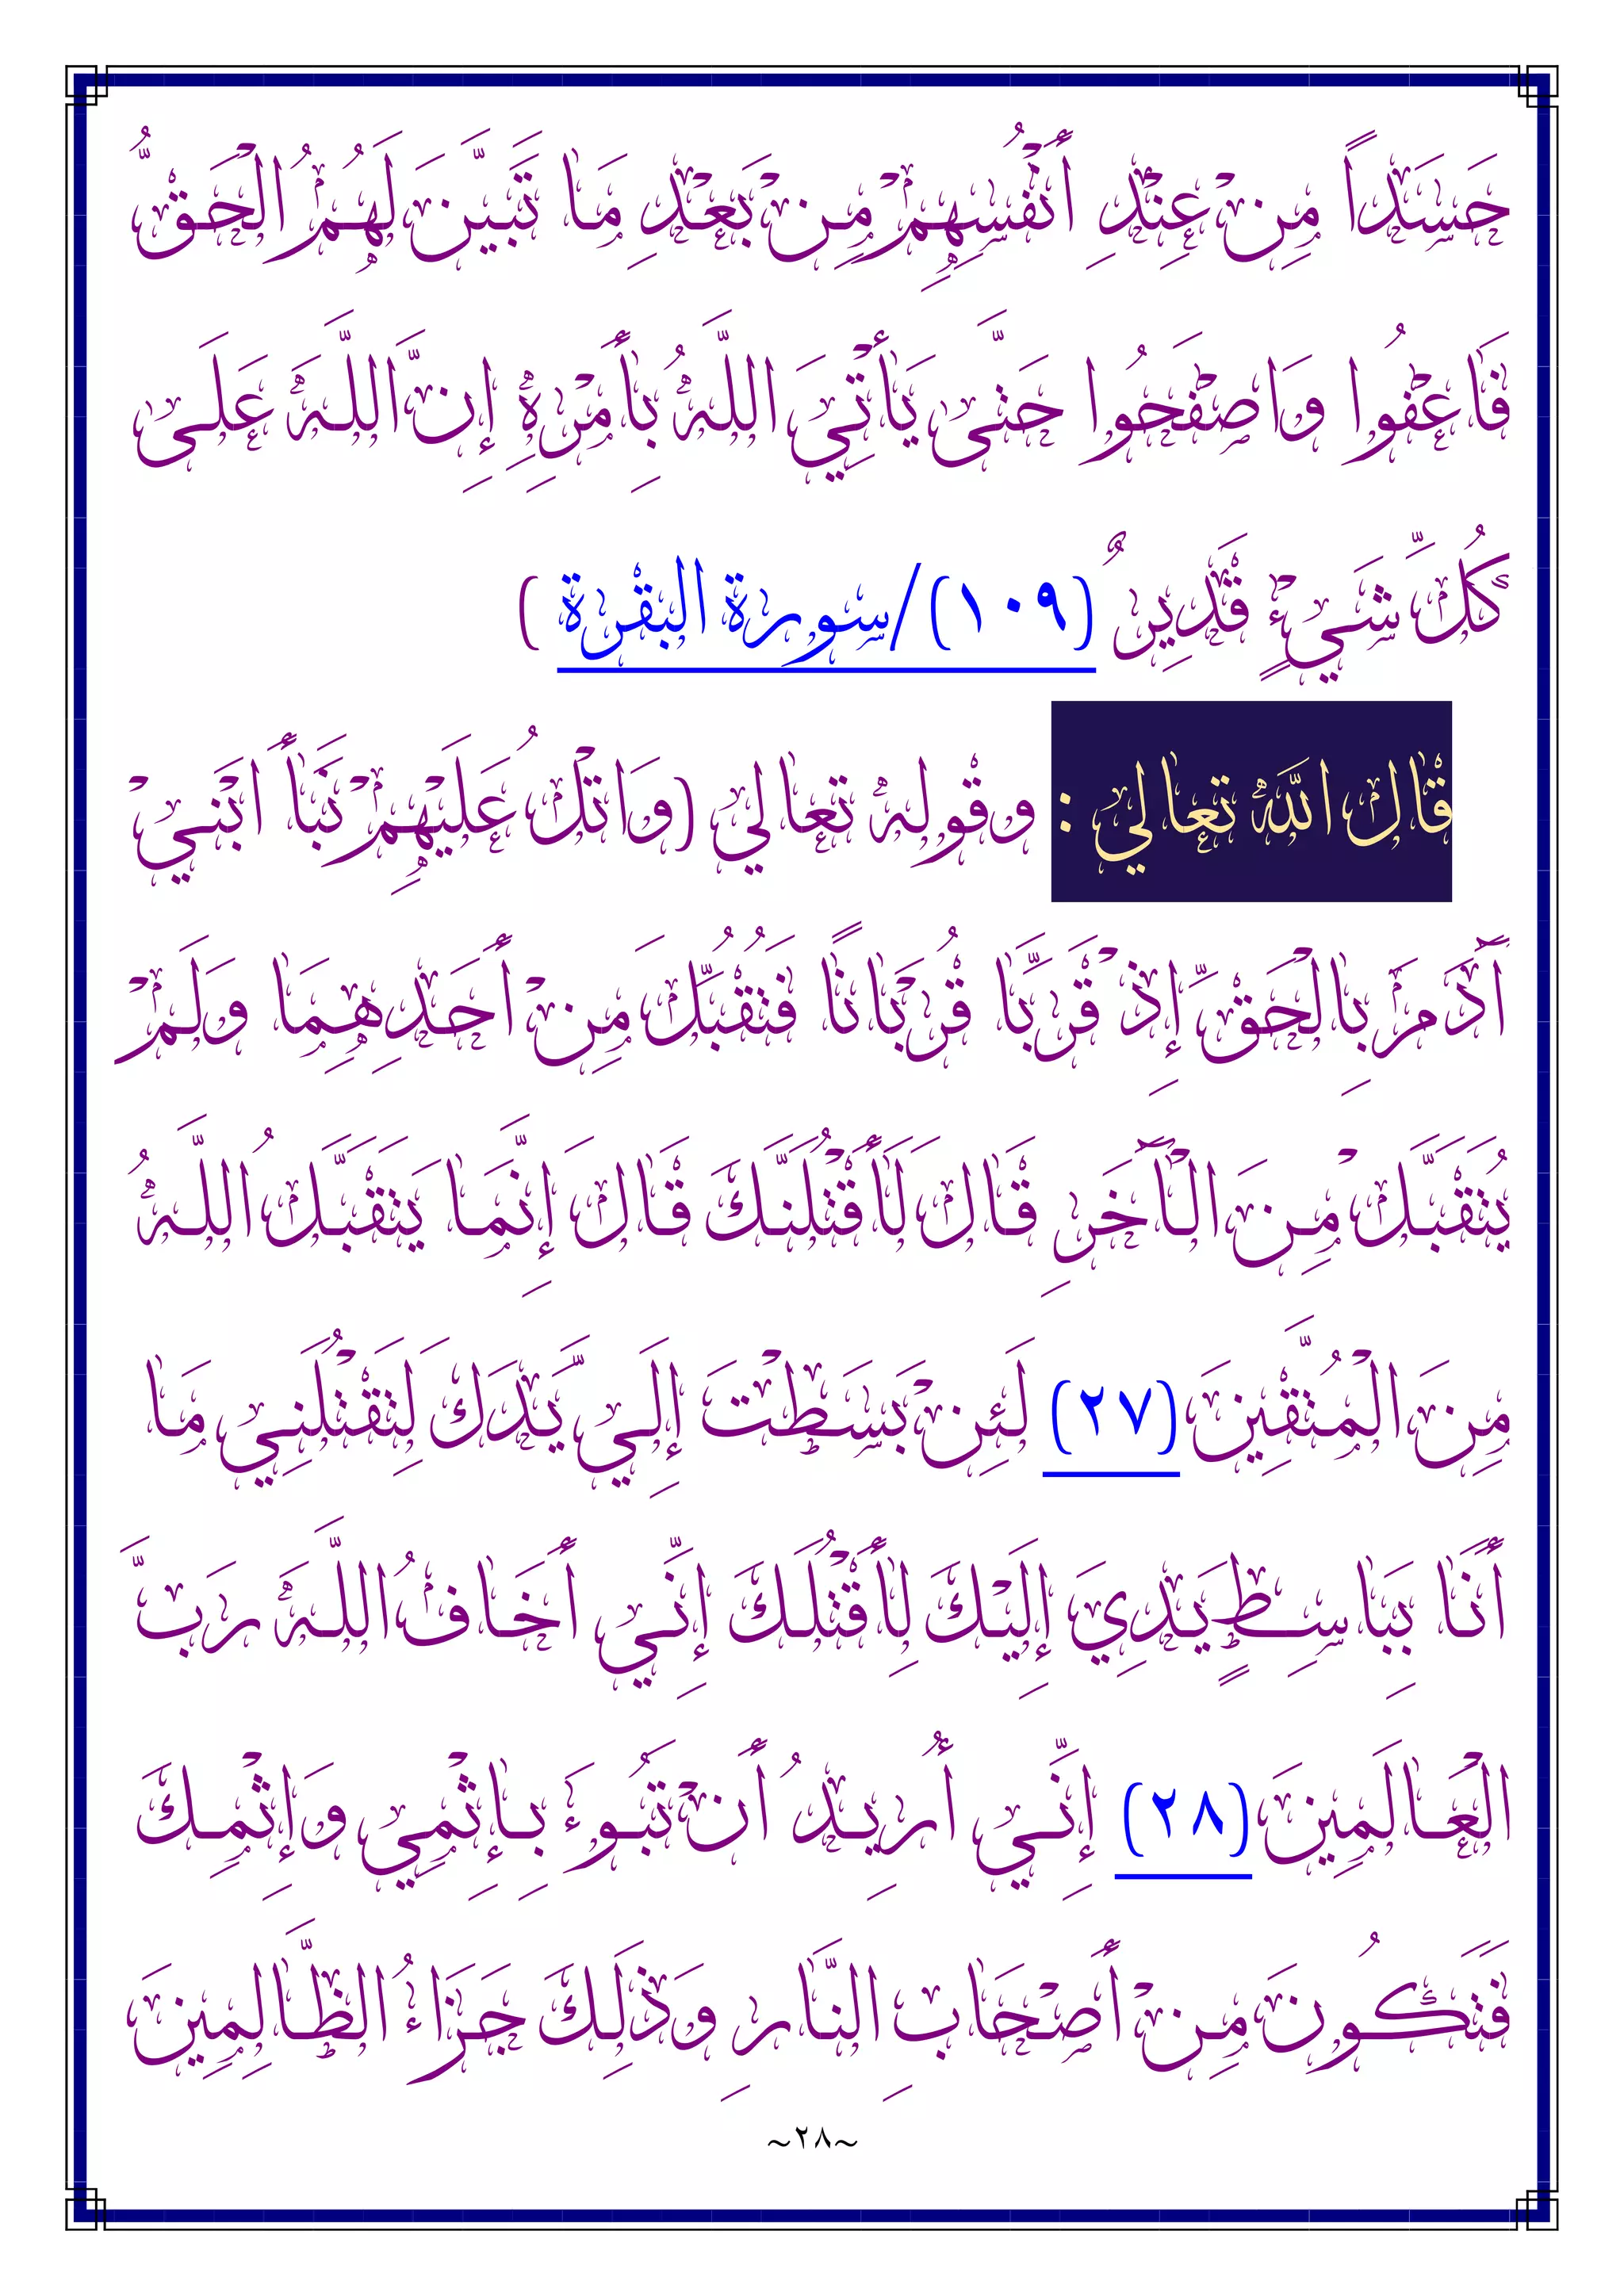 حَسَدًا مِنْ عِنْدِ أَنْفُسِهِمْ مِنْ بَعْدِ مَا تَبَيَّنَ لَهُمُ الْحَقُّ
فَاعْفُوا وَاصْفَحُوا حَتَّى يَأْتِيَ اللَّهُ بِأَمْرِهِ إِنَّ اللَّهَ عَلَى
كُلِّ شَيْءٍ قَدِيرٌ (١٠٩)/سورة البقرة )
قال الله تعالي : وقوله تعالي (وَاتْلُ عَلَيْهِمْ نَبَأَ ابْنَيْ
آَدَمَ بِالْحَقِّ إِذْ قَرَّبَا قُرْبَانًا فَتُقُبِّلَ مِنْ أَحَدِهِمَا وَلَمْ
يُتَقَبَّلْ مِنَ الْآَخَرِ قَالَ لَأَقْتُلَنَّكَ قَالَ إِنَّمَا يَتَقَبَّلُ اللَّهُ
مِنَ الْمُتَّقِينَ (٢٧) لَئِنْ بَسَطْتَ إِلَيَّ يَدَكَ لِتَقْتُلَنِي مَا
أَنَا بِبَاسِطٍ يَدِيَ إِلَيْكَ لِأَقْتُلَكَ إِنِّي أَخَافُ اللَّهَ رَبَّ
الْعَالَمِينَ (٢٨) إِنِّي أُرِيدُ أَنْ تَبُوءَ بِإِثْمِي وَإِثْمِكَ
فَتَكُونَ مِنْ أَصْحَابِ النَّارِ وَذَلِكَ جَزَاءُ الظَّالِمِينَ
~٢٨~